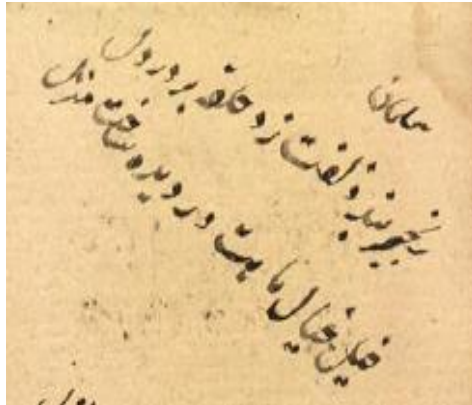 سلمان
زنجیر بند زلفت زد حلقه بر در دل
خیل خیال ماهت در دیده ساخت منزل